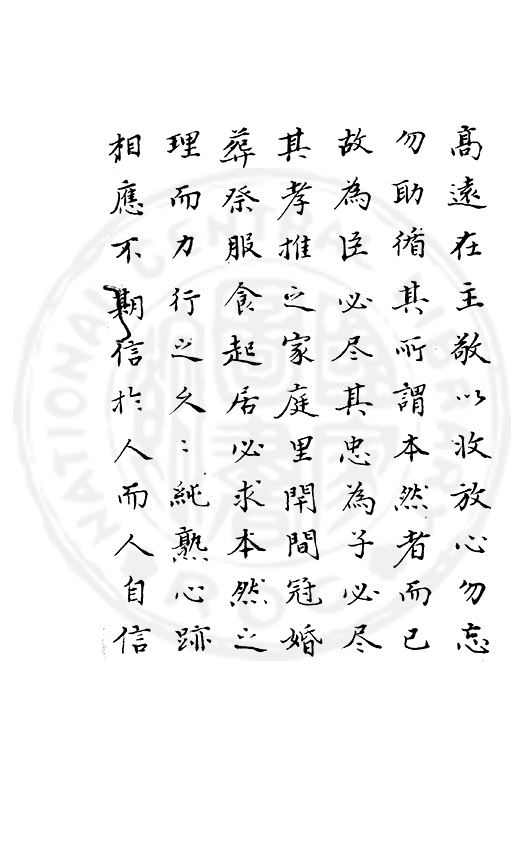 髙遠在主敬以收放心勿忘
勿助循其所謂本然者而已
故為臣必尽其忠為子必尽
其孝推之家庭里閈間冠婚
葬祭服食起居必求本然之
理而力行之久〻純熟心跡
相應不期信扵人而人自信
NATIONAL CENTRAL LIBRARY